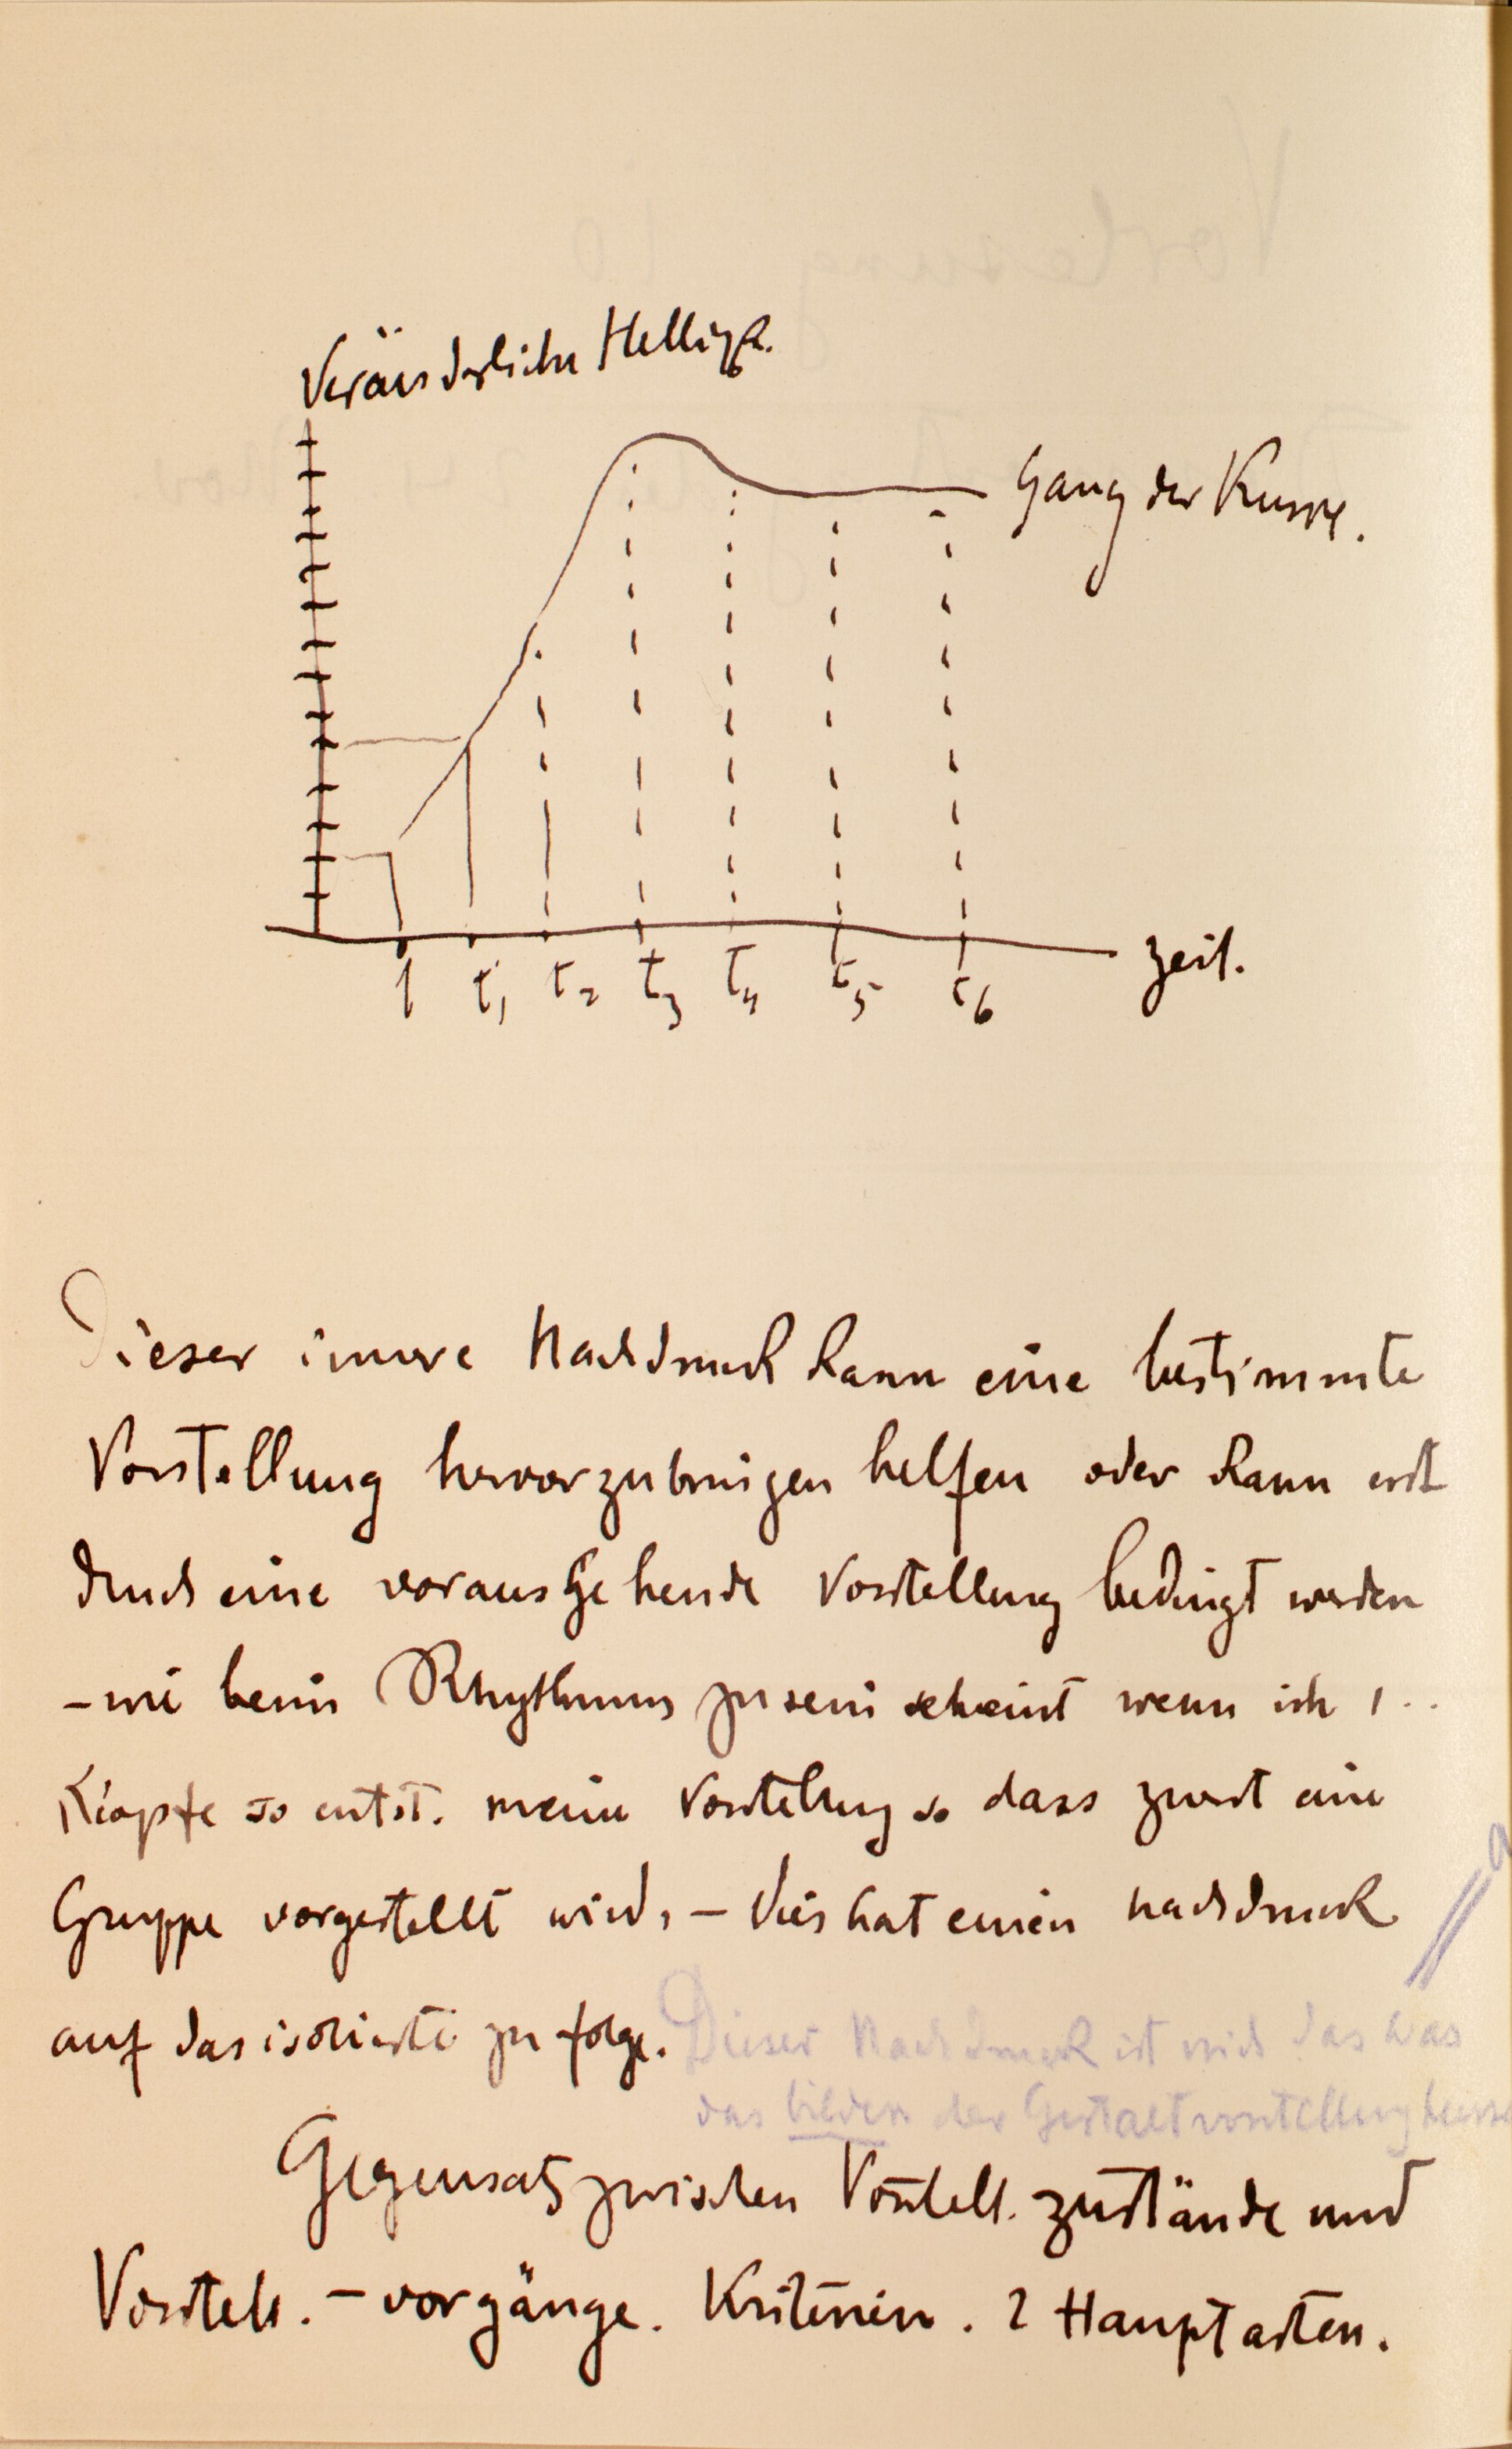 Veränderliche Helligk.
Gang der Kurve.
t t₁ t₂ t₃ t₄ t₅ t₆ Zeit.
Dieser innere Nachdruck kann eine bestimmte
Vorstellung hervorzubringen helfen oder kann erst
durch eine vorausgehende Vorstellung bedingt werden
– wie beim Rhythmus zu sein scheint wenn ich ı . .
Klopfe so entst. meine Vorstellung so dass zuerst eine
Gruppe vorgestellt wird, – dies hat einen nachdruck
auf das isolierte zu folge.
Dieser Nachdruck ist nicht das was
das bilden der Gestaltvorstellung
Gegensatz zwischen Vorstell. zustände und
Vorstell. – vorgänge. Kriterien. 2 Hauptarten.